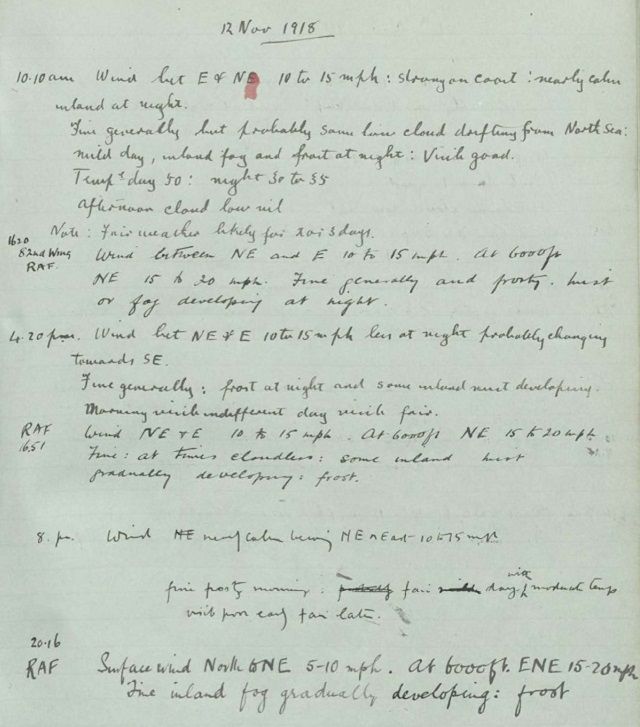 12 Nov 1918
10.10 am Wind bet E & NE 10 to 15 mph : strong on coast : nearly calm
inland at night.
Fine generally but probably some low cloud drifting from North Sea:
mild day, inland fog and frost at night : Visib good.
Temps day 50 : night 30 to 35
Afternoon cloud low nil
Note : Fair weather likely for 2 or 3 days.
1620
82nd Wing
RAF.
Wind between NE and E 10 to 15 mph. At 6000ft
NE 15 to 20 mph. Fine generally and frosty. mist
or fog developing at night.
4.20 pm. Wind bet NE & E 10 to 15 mph less at night probably changing
towards SE.
Fine generally : frost at night and some inland mist developing.
Morning visib indifferent day visib fair.
RAF
1651
Wind NE & E 10 to 15 mph. At 6000ft NE 15 to 20 mph.
Fine : at times cloudless : some inland mist
gradually developing : frost.
8. pm Wind NE nearly calm being NE 10 to 15 mph
fine frosty morning : probably fair mild day with moderate temp
visib poor early fair later.
20.16
RAF
Surface wind North to NE 5-10 mph. At 6000ft. ENE 15-20 mph
Fine inland fog gradually developing : frost